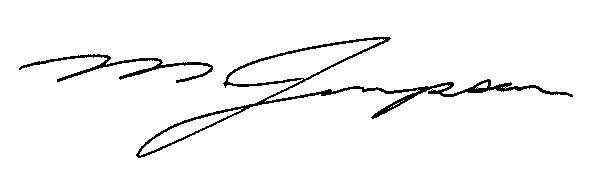 M Jempson